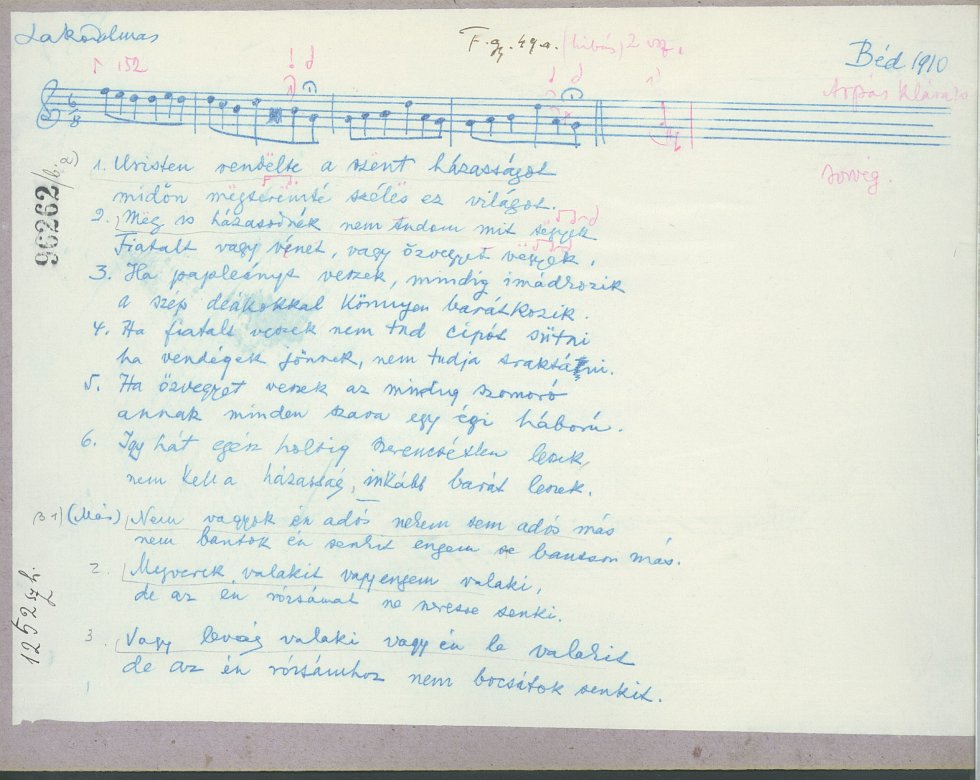 Lakodalmas
F. gy. 49a. (hibás) 2 vsz.
Béd 1910
152
Árpás Klára
6/8
szövég.
96262/b.
a)
1. Uristen rendëlte a szent házasságot
midőn mëgteremté szélës ez világot.
2. Még is házasodnék nem tudom mit tëgyek
Fiatalt vagy vénet, vagy özvegyet vëgyek.
3. Ha papleányt veszek, mindig imádkozik
a szép deákokkal könnyen barátkozik.
4. Ha fiatalt veszek nem tud cipót sütni
ha vendégek jönnek, nem tudja traktátni.
5. Ha özvegyet veszek az mindég szomorú
annak minden szava egy égi háború.
6. Igy hát egész holtig szerencsétlen leszek,
nem kell a házasság, inkább barát leszek.
b 1) (Más) Nem vagyok én adós nekem sem adós más
nem bántok én senkit engem se bántson más.
2. Megverek valakit vagy engem valaki,
de az én rózsámat ne neresse senki.
3. Vagy levág valaki vagy én le valakit
de az én rózsámhoz nem bocsátok senkit.
1252 szh.